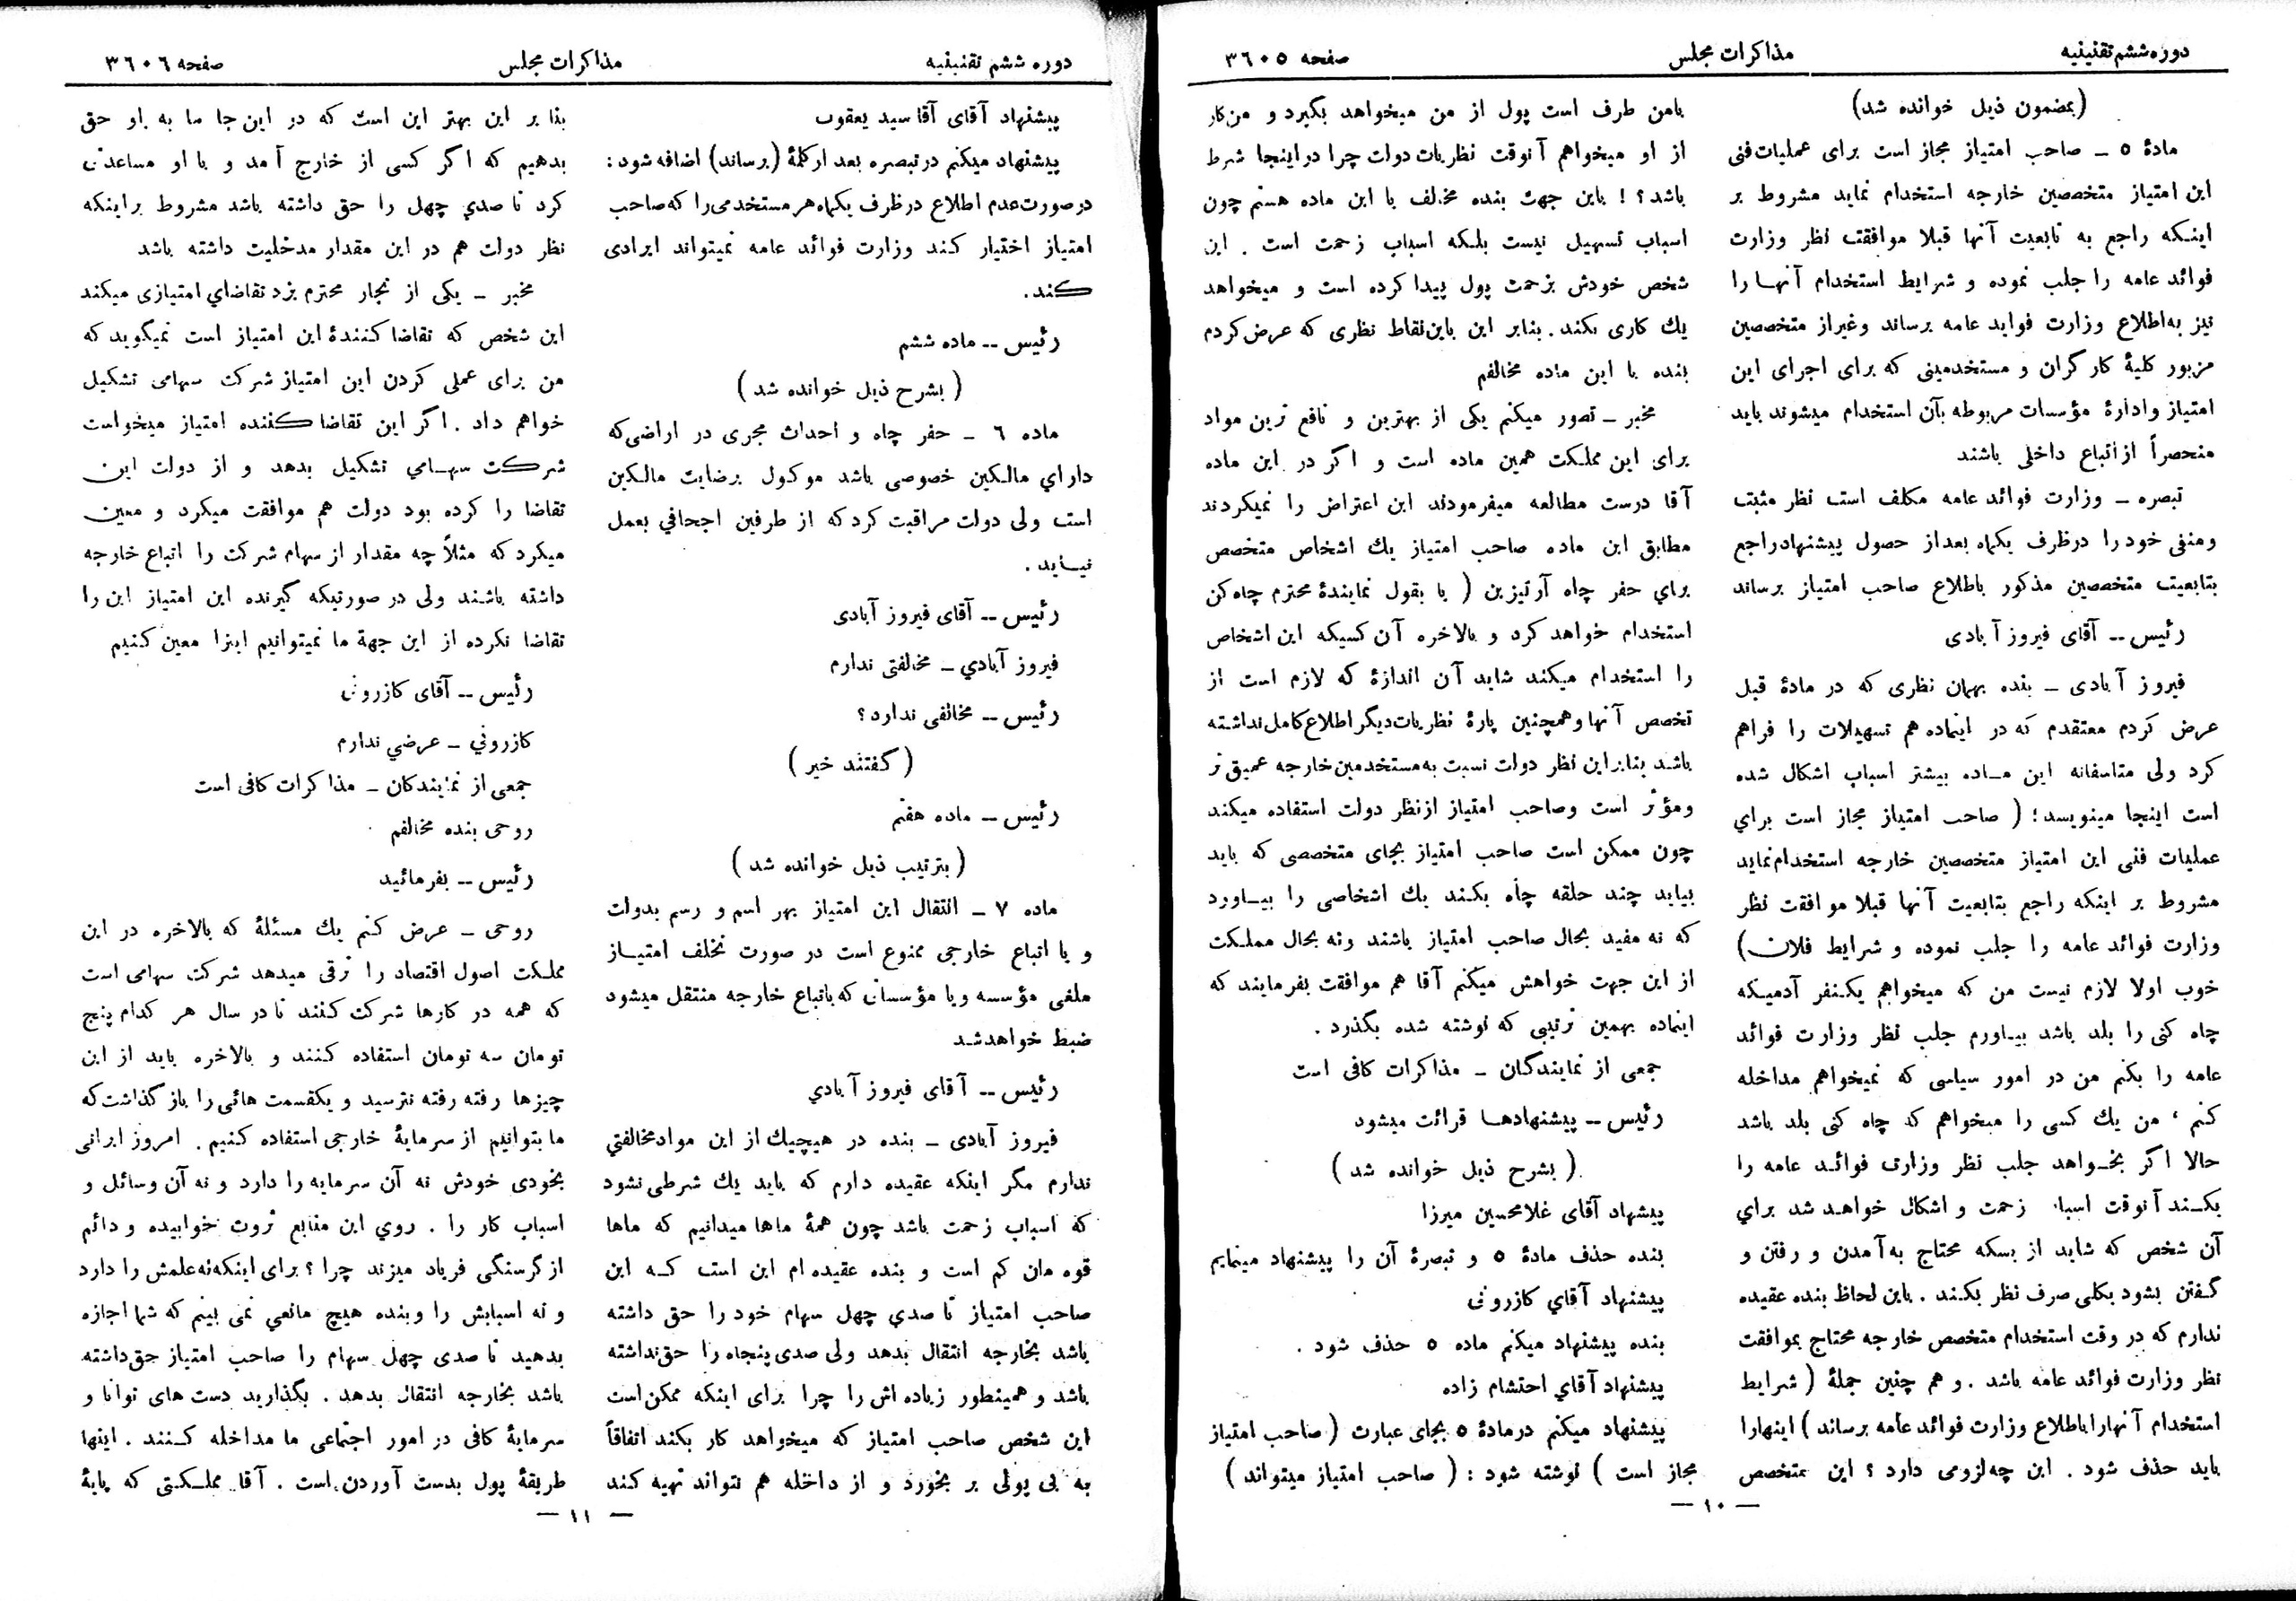 دوره ششم تقنینیه
مذاکرات مجلس
صفحه ۳۶۰۵
(بمضمون ذیل خوانده شد)
مادهٔ ۵ ـ صاحب امتیاز مجاز است برای عملیات فنی
این امتیاز متخصصین خارجه استخدام نماید مشروط بر
اینکه راجع به تابعیت آنها قبلا موافقت نظر وزارت
فوائد عامه را جلب نموده و شرایط استخدام آنها را
نیز به‌اطلاع وزارت فواید عامه برساند وغیراز متخصصین
مزبور کلیهٔ کارگران و مستخدمینی که برای اجرای این
امتیاز وادارهٔ مؤسسات مربوطه بآن استخدام میشوند باید
منحصراً ازاتباع داخلی باشند
تبصره ـ وزارت فوائد عامه مکلف است نظر مثبت
ومنفی خود را درظرف یکماه بعداز حصول پیشنهاد راجع
بتابعیت متخصصین مذکور باطلاع صاحب امتیاز برساند
رئیس ــ آقای فیروز آبادی
فیروز آبادی ـ بنده بهمان نظری که در مادهٔ قبل
عرض کردم معتقدم که در اینماده هم تسهیلات را فراهم
کرد ولی متاسفانه این ماده بیشتر اسباب اشکال شده
است اینجا مینویسد؛ ( صاحب امتیاز مجاز است برای
عملیات فنی این امتیاز متخصصین خارجه استخدام نماید
مشروط بر اینکه راجع بتابعیت آنها قبلا موافقت نظر
وزارت فوائد عامه را جلب نموده و شرایط فلان)
خوب اولا لازم نیست من که میخواهم یکنفر آدمیکه
چاه کنی را بلد باشد بیاورم جلب نظر وزارت فوائد
عامه را بکنم من در امور سیاسی که نمیخواهم مداخله
کنم ، من یك کسی را میخواهم که چاه کنی بلد باشد
حالا اگر بخواهد جلب نظر وزارت فوائد عامه را
بکند آنوقت اسباب زحمت و اشکال خواهد شد برای
آن شخص که شاید از بسکه محتاج به‌آمدن و رفتن و
گفتن بشود بکلی صرف نظر بکند . باین لحاظ بنده عقیده
ندارم که در وقت استخدام متخصص خارجه محتاج بموافقت
نظر وزارت فوائد عامه باشد . و هم چنین جملهٔ ( شرایط
استخدام آنهارا باطلاع وزارت فوائد عامه برساند ) اینهارا
باید حذف شود . این چه‌لزومی دارد ؟ این متخصص
بامن طرف است پول از من میخواهد بگیرد و من‌کار
از او میخواهم آنوقت نظریات دولت چرا دراینجا شرط
باشد؟ ! باین جهت بنده مخالف با این ماده هستم چون
اسباب تسهیل نیست بلکه اسباب زحمت است . این
شخص خودش بزحمت پول پیدا کرده است و میخواهد
یك کاری بکند . بنابر این باین‌نقاط نظری که عرض‌کردم
بنده با این ماده مخالفم
مخبر ـ تصور میکنم یکی از بهترین و نافع ترین مواد
برای این مملکت همین ماده است و اگر در این ماده
آقا درست مطالعه میفرمودند این اعتراض را نمیکردند
مطابق این ماده صاحب امتیاز یك اشخاص متخصص
برای حفر چاه آرتیزین ( یا بقول نمایندهٔ محترم چاه‌کن
استخدام خواهد کرد و بالاخره آن کسیکه این اشخاص
را استخدام میکند شاید آن اندازهٔ که لازم است از
تخصص آنها وهمچنین پارهٔ نظریات‌دیگر اطلاع‌کامل‌نداشته
باشد بنابراین نظر دولت نسبت به‌مستخدمین‌خارجه عمیق‌تر
ومؤثر است وصاحب امتیاز ازنظر دولت استفاده میکند
چون ممکن است صاحب امتیاز بجای متخصصی که باید
بیاید چند حلقه چاه بکند یك اشخاصی را بیاورد
که نه مفید بحال صاحب امتیاز باشند ونه بحال مملکت
از این جهت خواهش میکنم آقا هم موافقت بفرمایند که
اینماده بهمین ترتیبی که نوشته شده بگذرد .
جمعی از نمایندگان ـ مذاکرات کافی است
رئیس ــ پیشنهادها قرائت میشود
( بشرح ذیل خوانده شد )
پیشنهاد آقای غلامحسین میرزا
بنده حذف مادهٔ ۵ و تبصرهٔ آن را پیشنهاد مینمایم
پیشنهاد آقای کازرونی
بنده پیشنهاد میکنم ماده ۵ حذف شود .
پیشنهاد آقای احتشام زاده
پیشنهاد میکنم درمادهٔ ۵ بجای عبارت ( صاحب امتیاز
مجاز است ) نوشته شود : ( صاحب امتیاز میتواند )
— ۱۰ —
دوره ششم تقنینیه
مذاکرات مجلس
صفحه ۳۶۰۶
پیشنهاد آقای آقاسید یعقوب
پیشنهاد میکنم درتبصره بعد ازکلمهٔ (برساند) اضافه‌شود:
درصورت‌عدم اطلاع درظرف یکماه‌هر‌مستخدمی را که‌صاحب
امتیاز اختیار کند وزارت فوائد عامه نمیتواند ایرادی
کند.
رئیس ــ ماده ششم
( بشرح ذیل خوانده شد )
ماده ۶ ـ حفر چاه و احداث مجری در اراضی‌که
دارای مالکین خصوصی باشد موکول برضایت مالکین
است ولی دولت مراقبت کرد که از طرفین اجحافی بعمل
نیاید .
رئیس ــ آقای فیروز آبادی
فیروز آبادی ـ مخالفتی ندارم
رئیس ــ مخالفی ندارد؟
( گفتند خیر )
رئیس ــ ماده هفتم
(بترتیب ذیل خوانده شد )
ماده ۷ ـ انتقال این امتیاز بهر اسم و رسم بدولت
و یا اتباع خارجی ممنوع است در صورت تخلف امتیاز
ملغی مؤسسه ویا مؤسساتی که باتباع خارجه منتقل میشود
ضبط خواهدشد
رئیس ــ آقای فیروز آبادی
فیروز آبادی ـ بنده در هیچیك از این مواد مخالفتی
ندارم مگر اینکه عقیده دارم که باید یك شرطی نشود
که اسباب زحمت باشد چون همهٔ ماها میدانیم که ماها
قوه مان کم است و بنده عقیده ام این است که این
صاحب امتیاز تا صدی چهل سهام خود را حق داشته
باشد بخارجه انتقال بدهد ولی صدی پنجاه را حق‌نداشته
باشد و همینطور زیاده اش را چرا برای اینکه ممکن‌است
این شخص صاحب امتیاز که میخواهد کار بکند اتفاقاً
به بی پولی بر بخورد و از داخله هم نتواند تهیه کند
بنا بر این بهتر این است که در این جا ما به او حق
بدهیم که اگر کسی از خارج آمد و با او مساعدتی
کرد تا صدی چهل را حق داشته باشد مشروط براینکه
نظر دولت هم در این مقدار مدخلیت داشته باشد
مخبر ـ یکی از تجار محترم یزد تقاضای امتیازی میکند
این شخص که تقاضا کنندهٔ این امتیاز است نمیگوید که
من برای عملی کردن این امتیاز شرکت سهامی تشکیل
خواهم داد . اگر این تقاضا کننده امتیاز میخواست
شرکت سهامی تشکیل بدهد و از دولت این
تقاضا را کرده بود دولت هم موافقت میکرد و معین
میکرد که مثلاً چه مقدار از سهام شرکت را اتباع خارجه
داشته باشند ولی در صورتیکه گیرنده این امتیاز این را
تقاضا نکرده از این جهة ما نمیتوانیم اینرا معین کنیم
رئیس ــ آقای کازرونی
کازرونی ـ عرضی ندارم
جمعی از نمایندگان ـ مذاکرات کافی است
روحی بنده مخالفم
رئیس ــ بفرمائید
روحی ـ عرض کنم یك مسئلهٔ که بالاخره در این
مملکت اصول اقتصاد را ترقی میدهد شرکت سهامی است
که همه در کارها شرکت کنند تا در سال هر کدام پنج
تومان سه تومان استفاده کنند و بالاخره باید از این
چیزها رفته رفته نترسید و یکقسمت هائی را باز گذاشت که
ما بتوانیم از سرمایهٔ خارجی استفاده کنیم . امروز ایرانی
بخودی خودش نه آن سرمایه را دارد و نه آن وسائل و
اسباب کار را . روی این منابع ثروت خوابیده و دائم
از گرسنگی فریاد میزند چرا ؟ برای اینکه‌نه‌علمش را دارد
و نه اسبابش را وبنده هیچ مانعی نمی بینم که شما اجازه
بدهید تا صدی چهل سهام را صاحب امتیاز حق‌داشته
باشد بخارجه انتقال بدهد . بگذارید دست های توانا و
سرمایهٔ کافی در امور اجتماعی ما مداخله کنند . اینها
طریقهٔ پول بدست آوردن است . آقا مملکتی که پایهٔ
— ۱۱ —